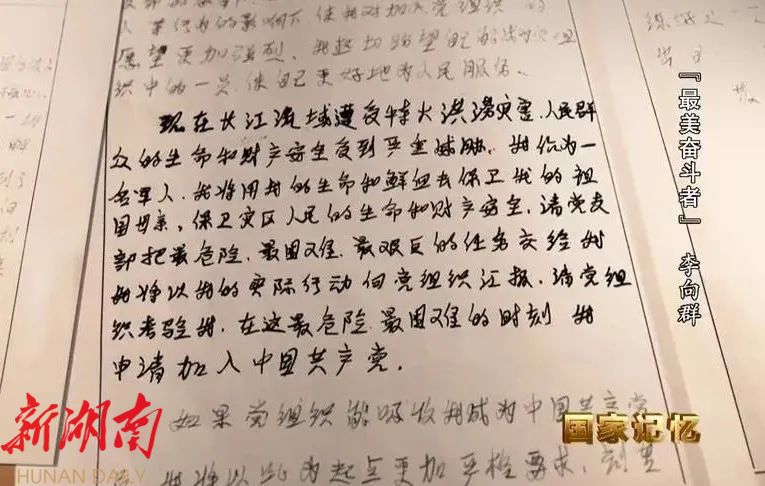 愿望更加强烈。我迫切盼望自己能成为党组
织中的一员，使自己更好地为人民服务。
现在长江流域遭受特大洪涝灾害，人民群
众的生命和财产安全受到严重威胁，我作为一
名军人，我将用我的生命和鲜血去保卫我的祖
国母亲，保卫灾区人民的生命和财产安全，请党支
部把最危险、最困难、最艰巨的任务交给我
我将以我的实际行动向党组织汇报，请党组
织考验我，在这最危险、最困难的时刻 我
申请加入中国共产党。
如果党组织能吸收我成为中国共产党
我将以此为起点更加严格要求
『最美奋斗者』 李向群
国家记忆
新湖南
HUNAN DAILY